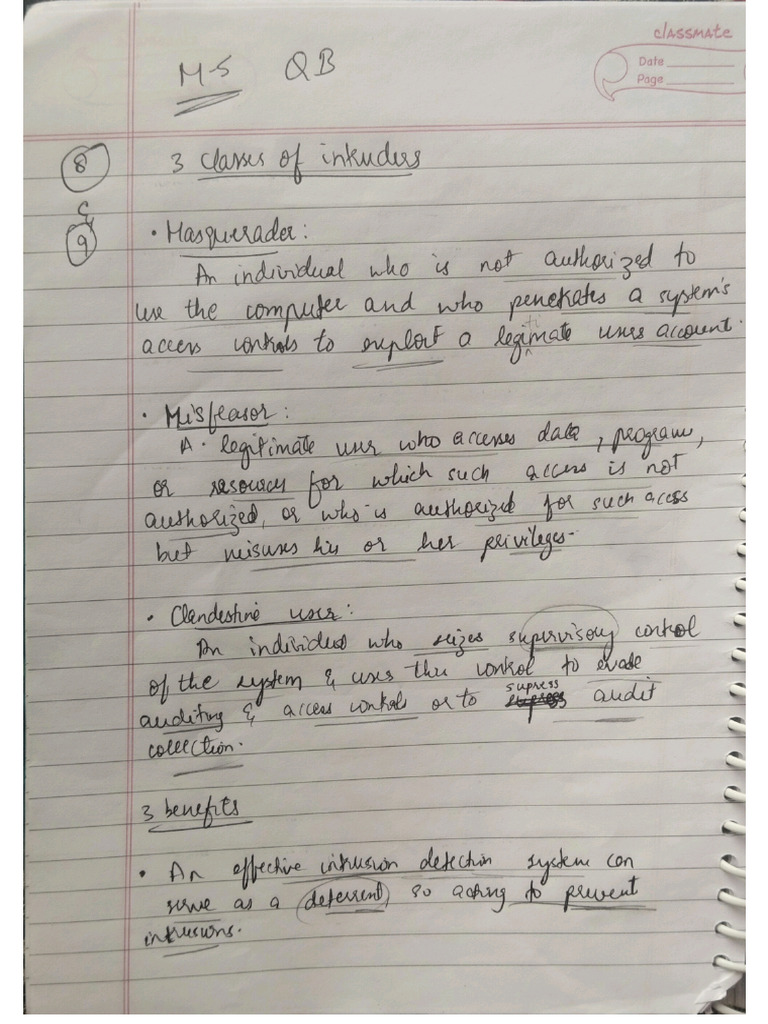 classmate
Date
Page
M-5 QB
8 3 classes of intruders
&
9 • Masquerader:
An individual who is not authorized to
use the computer and who penetrates a system's
access controls to exploit a legitimate users account.
• Misfeasor:
A legitimate user who accesses data, program,
or resources for which such access is not
authorized, or who is authorized for such access
but misuses his or her privileges.
• Clandestine user:
An individual who seizes supervisory control
of the system & uses this control to evade
auditing & access controls or to supress audit
collection.
3 benefits
• An effective intrusion detection system can
serve as a deterrent so acting to prevent
intrusions.